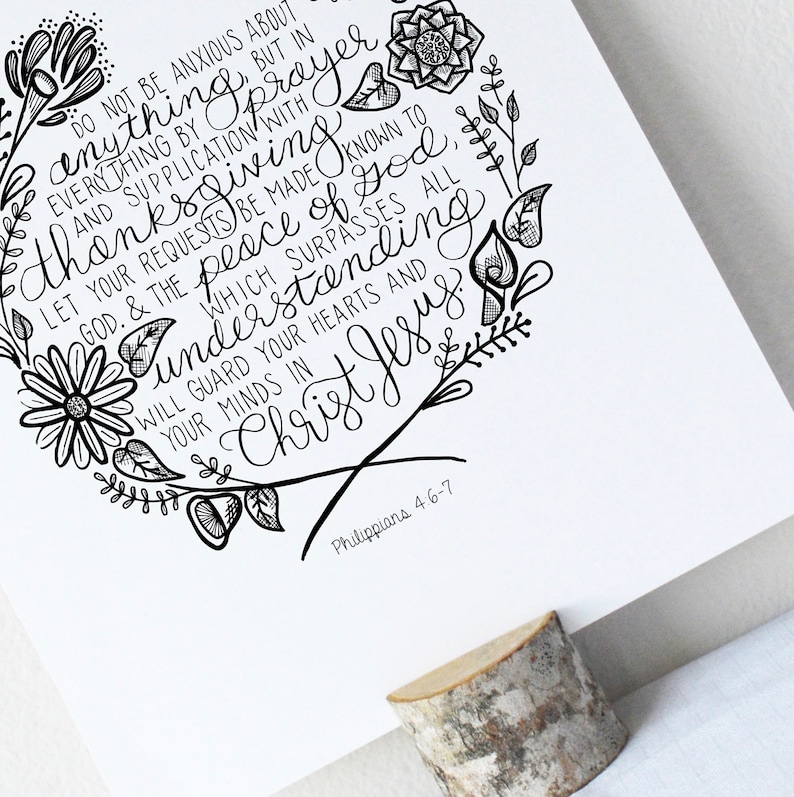 DO NOT BE ANXIOUS ABOUT
anything, BUT IN
EVERYTHING BY prayer
AND SUPPLICATION WITH
thanksgiving
LET YOUR REQUESTS BE MADE KNOWN TO
GOD. & THE peace of God,
WHICH SURPASSES ALL
understanding
WILL GUARD YOUR HEARTS AND
YOUR MINDS IN
Christ Jesus.
Philippians 4:6-7